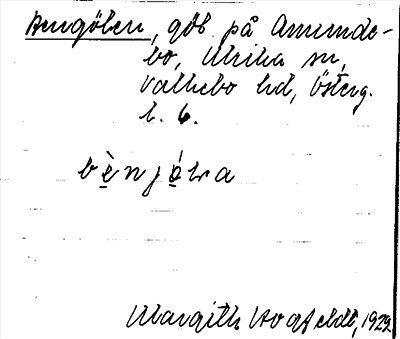 Bengölen, gdb på Amunde-
bo, Ulrika sn,
Valkebo hd, Österg.
l. 6.
bènjö́lva
Margith Hogfeldt, 1929